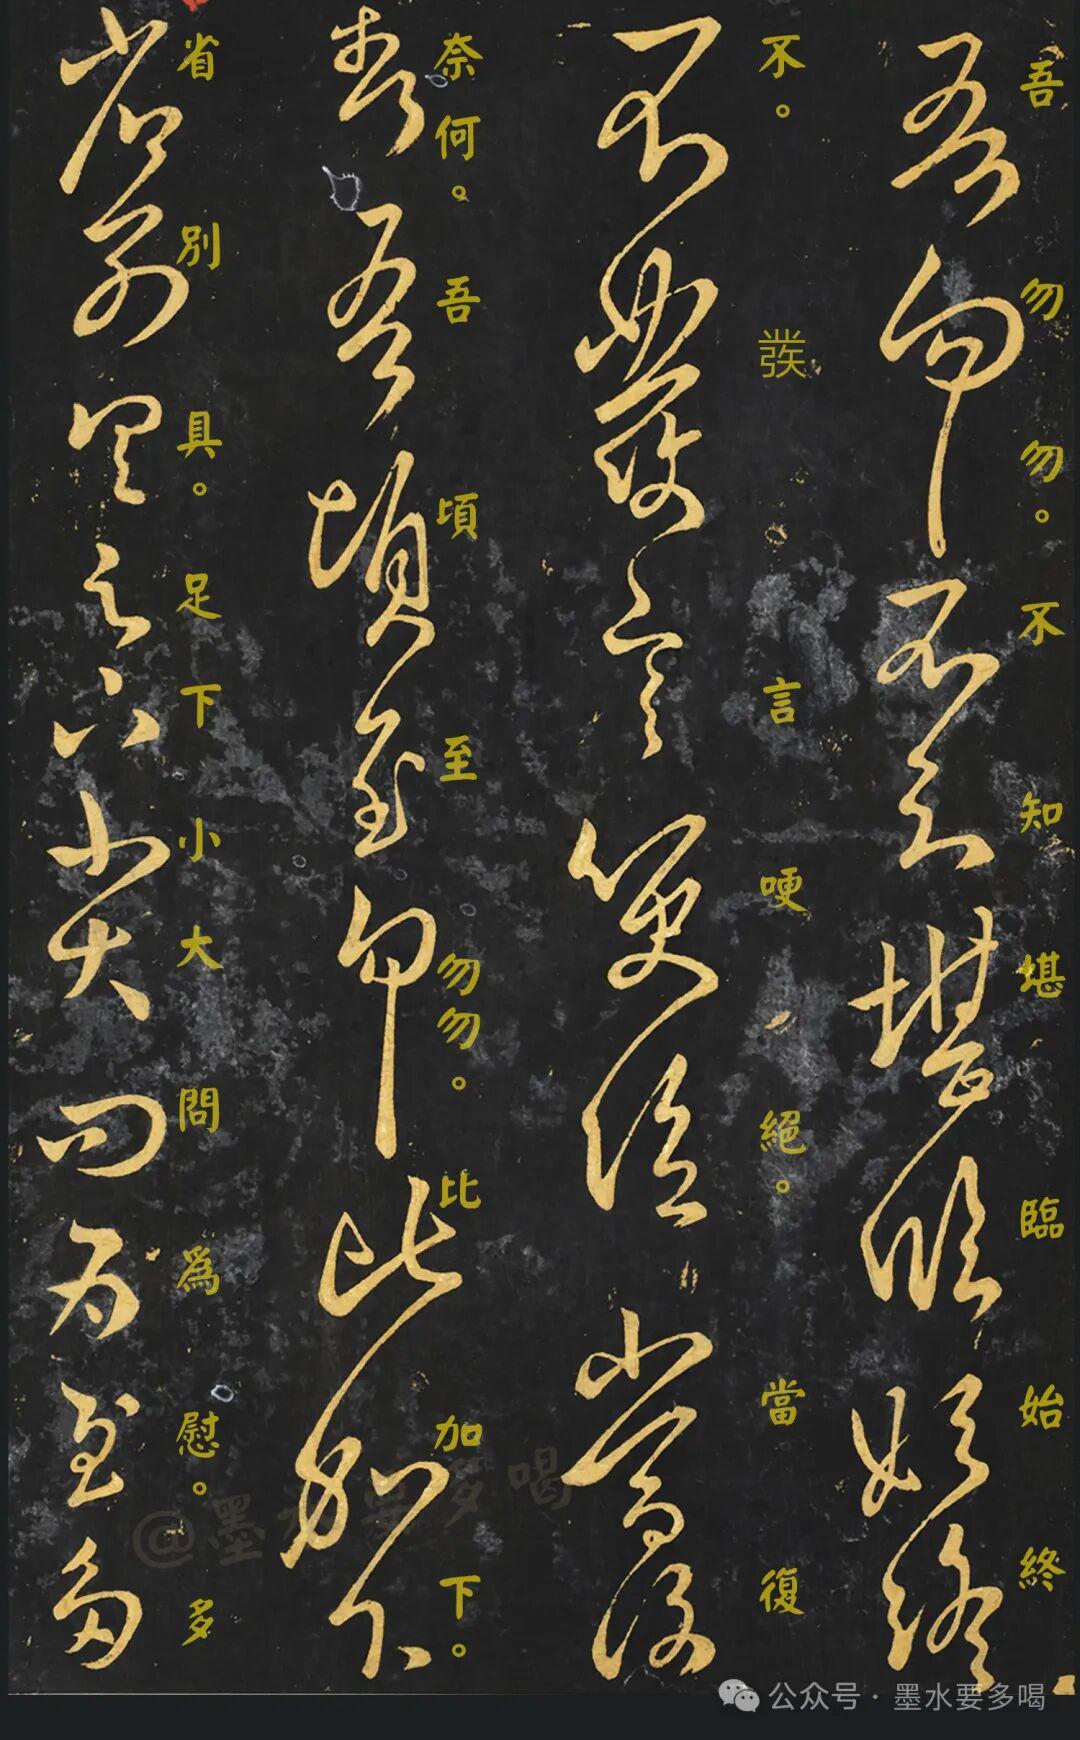 吾勿勿。不知堪臨始終
不。彂言哽絕。當復
奈何。吾頃至勿勿。比加下。
省別具。足下小大問爲慰。多
@墨水要多喝
公众号·墨水要多喝